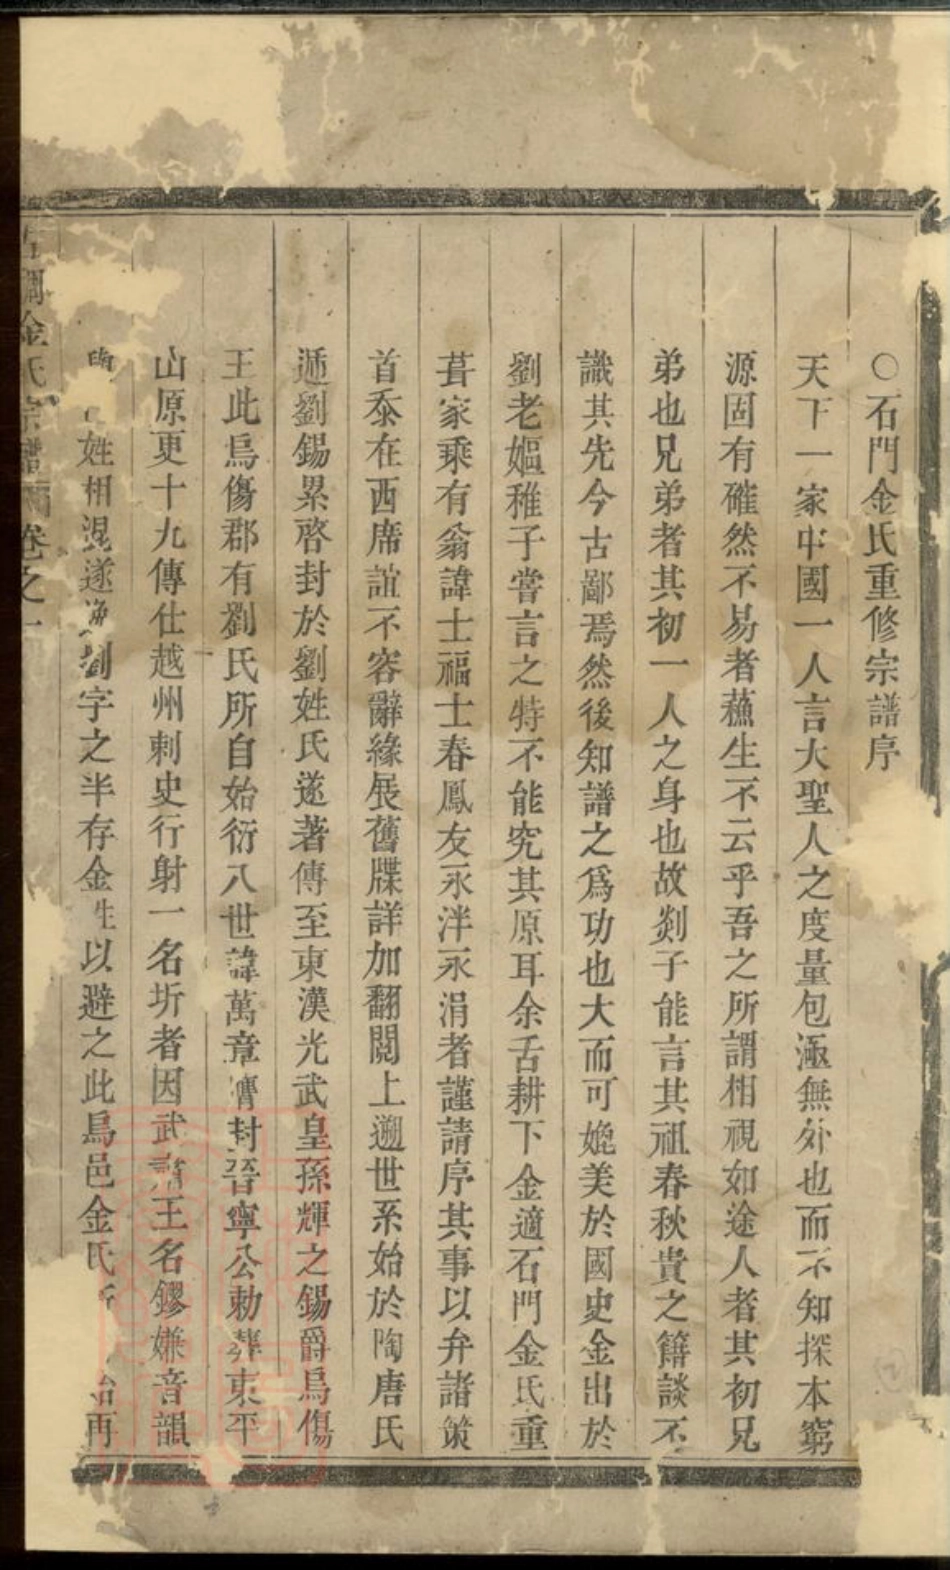 ○石門金氏重修宗譜序
天下一家中國一人言大聖人之度量包涵無外也而不知探本窮
源固有確然不易者蘓生不云乎吾之所謂相視如途人者其初兄
弟也兄弟者其初一人之身也故剡子能言其祖春秋貴之籍談不
識其先今古鄙焉然後知譜之爲功也大而可媲美於國史金出於
劉老嫗稚子嘗言之特不能究其原耳余舌耕下金適石門金氏重
葺家乘有翁諱士福士春鳳友永泮永涓者謹請序其事以弁諸策
首忝在西席誼不容辭緣展舊牒詳加翻閱上遡世系始於陶唐氏
遞劉錫累啓封於劉姓氏遂著傳至東漢光武皇孫輝之錫爵烏傷
王此烏傷郡有劉氏所自始衍八世諱萬章膺封晉寧公勅葬東平
山原更十九傳仕越州刺史行射一名圻者因武肅王名鏐嫌音韻
與姓相混遂劉字之半存金姓以避之此烏邑金氏始再
石門金氏宗譜卷之一